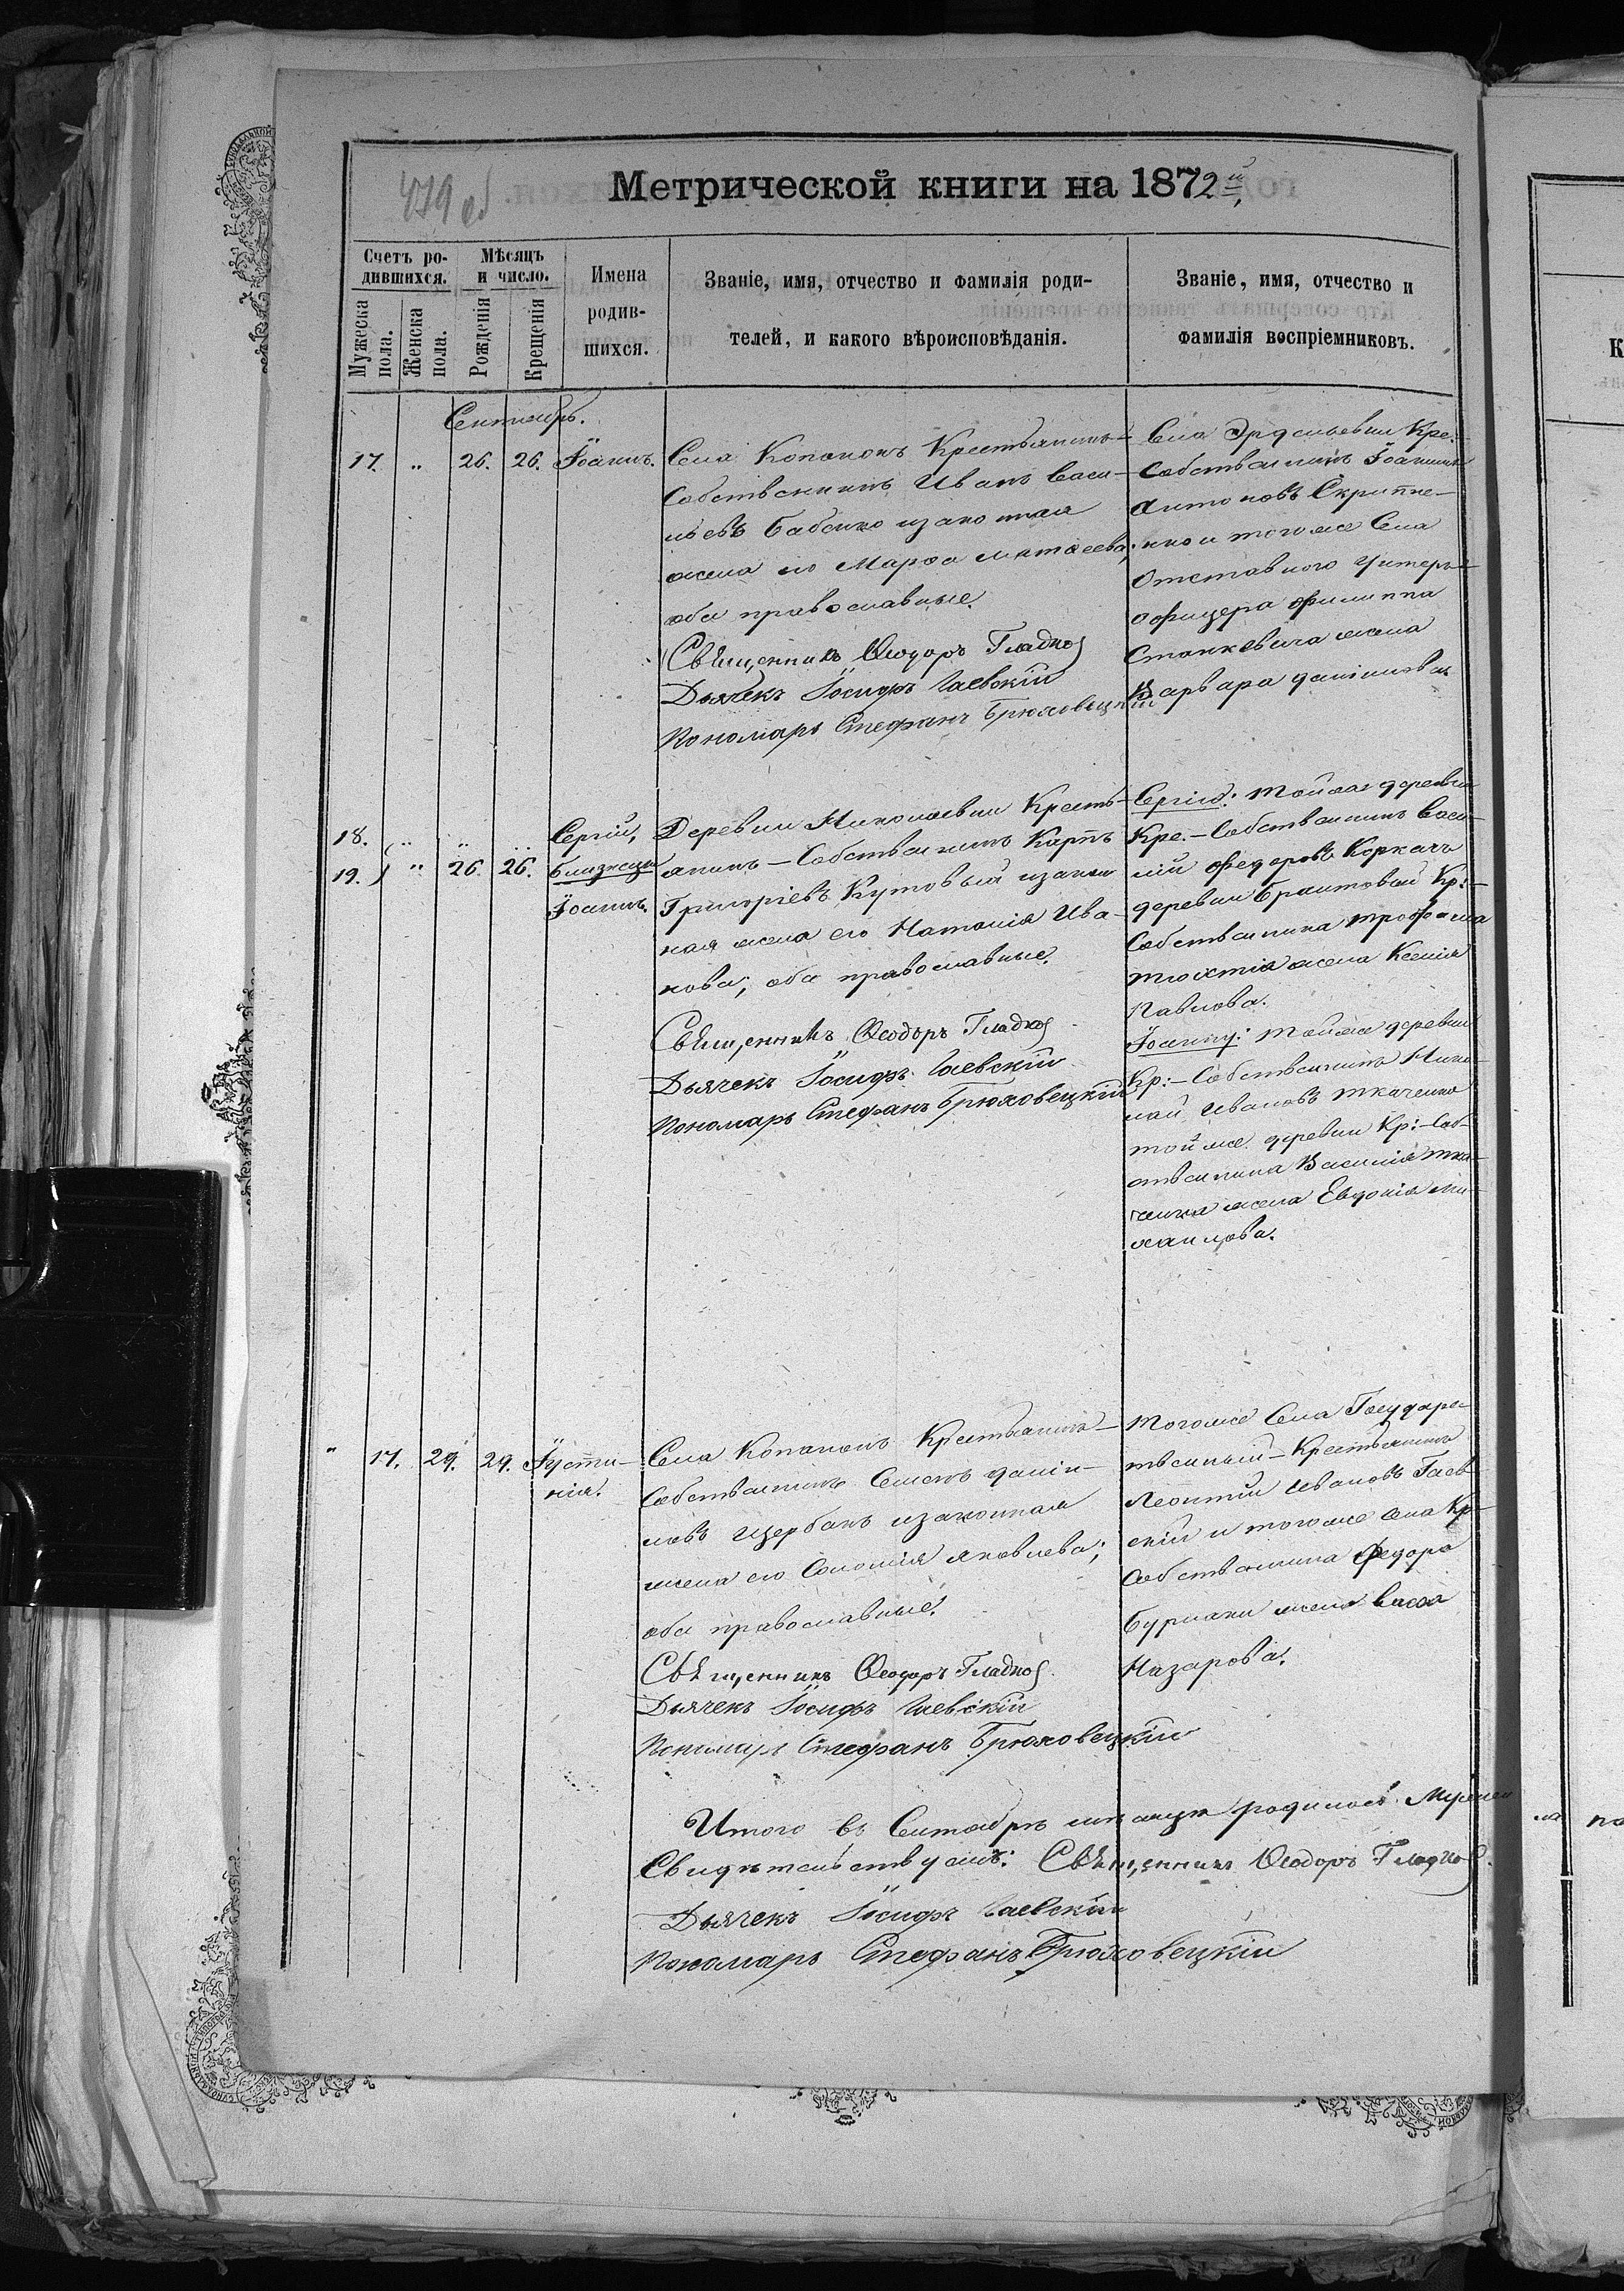 419 об
Метрической книги на 1872й
Счетъ ро-
дившихся.
Мѣсяцъ
и число.
Мужеска
пола.
Женска
пола.
Рожденія
Крещенія
Имена
родив-
шихся.
Званіе, имя, отчество и фамилія роди-
телей, и какого вѣроисповѣданія.
Званіе, имя, отчество и
фамилія воспріемниковъ.
Сентябрь.
17. " 26. 26. Іоаннъ.
Села Копанокъ Крестьянинъ-
Собственникъ Иванъ Васи-
льевъ Бабенко изаконная
жена его Марѳа Матѳеева;
оба православные.
Священникъ Ѳеодоръ Гладкой
Дьячекъ Іосифъ Чаевскій
Пономарь Стефанъ Брюховецкій
Села Эрделыевки Кре.-
Собственникъ Іоаннъ
Антоновъ Скрипни-
кно и тогоже Села
Отставного Унтеръ-
офицера Филиппа
Станкевича жена
Варвара Даніилова
18. " " "
19. " 26. 26.
Сергій,
близнецы
Іоаннъ.
Деревни Николаевки Кресть-
янинъ-Собственникъ Карпъ
Григоріевъ Кутовый изакон
ная жена его Наталія Ива-
нова; оба православные.
Священникъ Ѳеодоръ Гладкой
Дьячекъ Іосифъ Чаевскій
Пономарь Стефанъ Брюховецкій
Сергію: Тойже деревни
Кре.-Собственникъ Васи-
лій Федоровъ Коркачъ
деревни Братовой Кр:-
Собственника Трофима
жена Ксенія
Павлова.
Іоанну: Тойже деревни
Кр:-Собственникъ Нико-
лай Ивановъ Ткаченко
тойже деревни Кр:-Соб-
ственника Василія Тка-
ченка жена Евдокія Ми-
хаилова.
" 17. 29. 29. Іусти-
нія.
Села Копанокъ Крестьянинъ-
Собственникъ Семенъ Даніи-
ловъ Щербанъ изаконная
жена его Соломія Яковлева;
оба православные.
Священникъ Ѳеодоръ Гладкой
Дьячекъ Іосифъ Чаевскій
Пономарь Стефанъ Брюховецкій
Тогоже Села Государс-
твенный-Крестьянинъ
Леонтій Ивановъ Гаев-
скій и тогоже Села Кр-
Собственника Федора
Бурлаки жена Васса
Назарова.
Итого въ Сентябрѣ мѣсяцѣ родилось Мужеска
Свидѣтельствуемъ: Священникъ Ѳеодоръ Гладкой.
Дьячекъ Іосифъ Чаевскій
Пономарь Стефанъ Брюховецкій